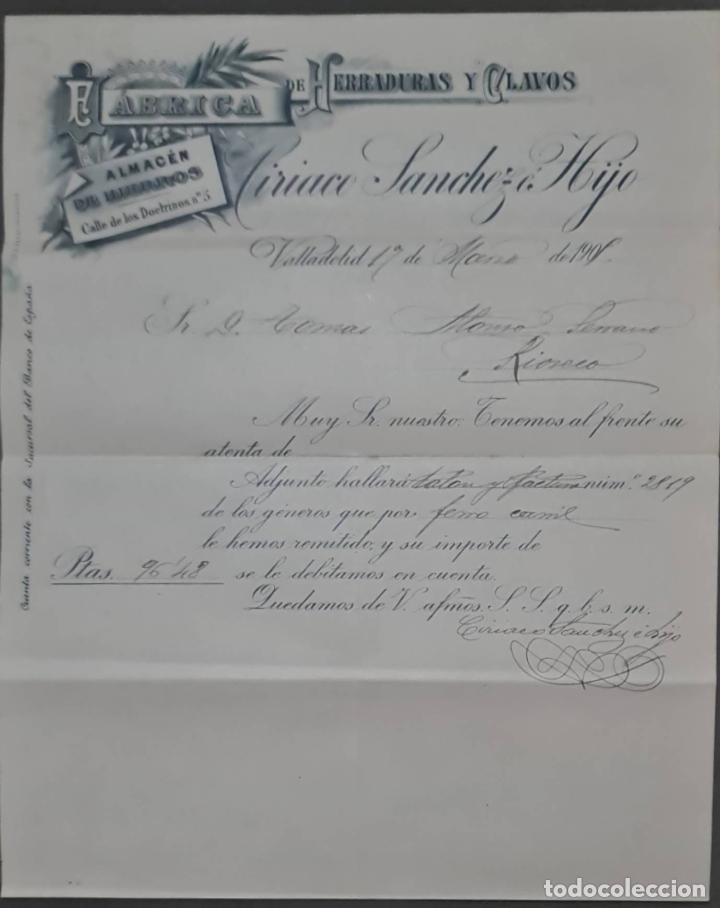 FÁBRICA DE HERRADURAS Y CLAVOS
ALMACÉN
DE
Calle de los Doctrinos nº 5
Ciriaco Sanchez é Hijo
Valladolid 17 de de 190
Sr. D. Tomas Alonso Serrano
Rioseco
Muy Sr. nuestro: Tenemos al frente su
atenta de
Adjunto hallará talon y factura núm.º 2819
de los géneros que por ferro carril
le hemos remitido, y su importe de
Ptas. 96'48 se le debitamos en cuenta.
Quedamos de V. afmos. S. S. q. b. s. m.
Ciriaco Sanchez é hijo
Cuenta corriente con la Sucursal del Banco de España
todocoleccion